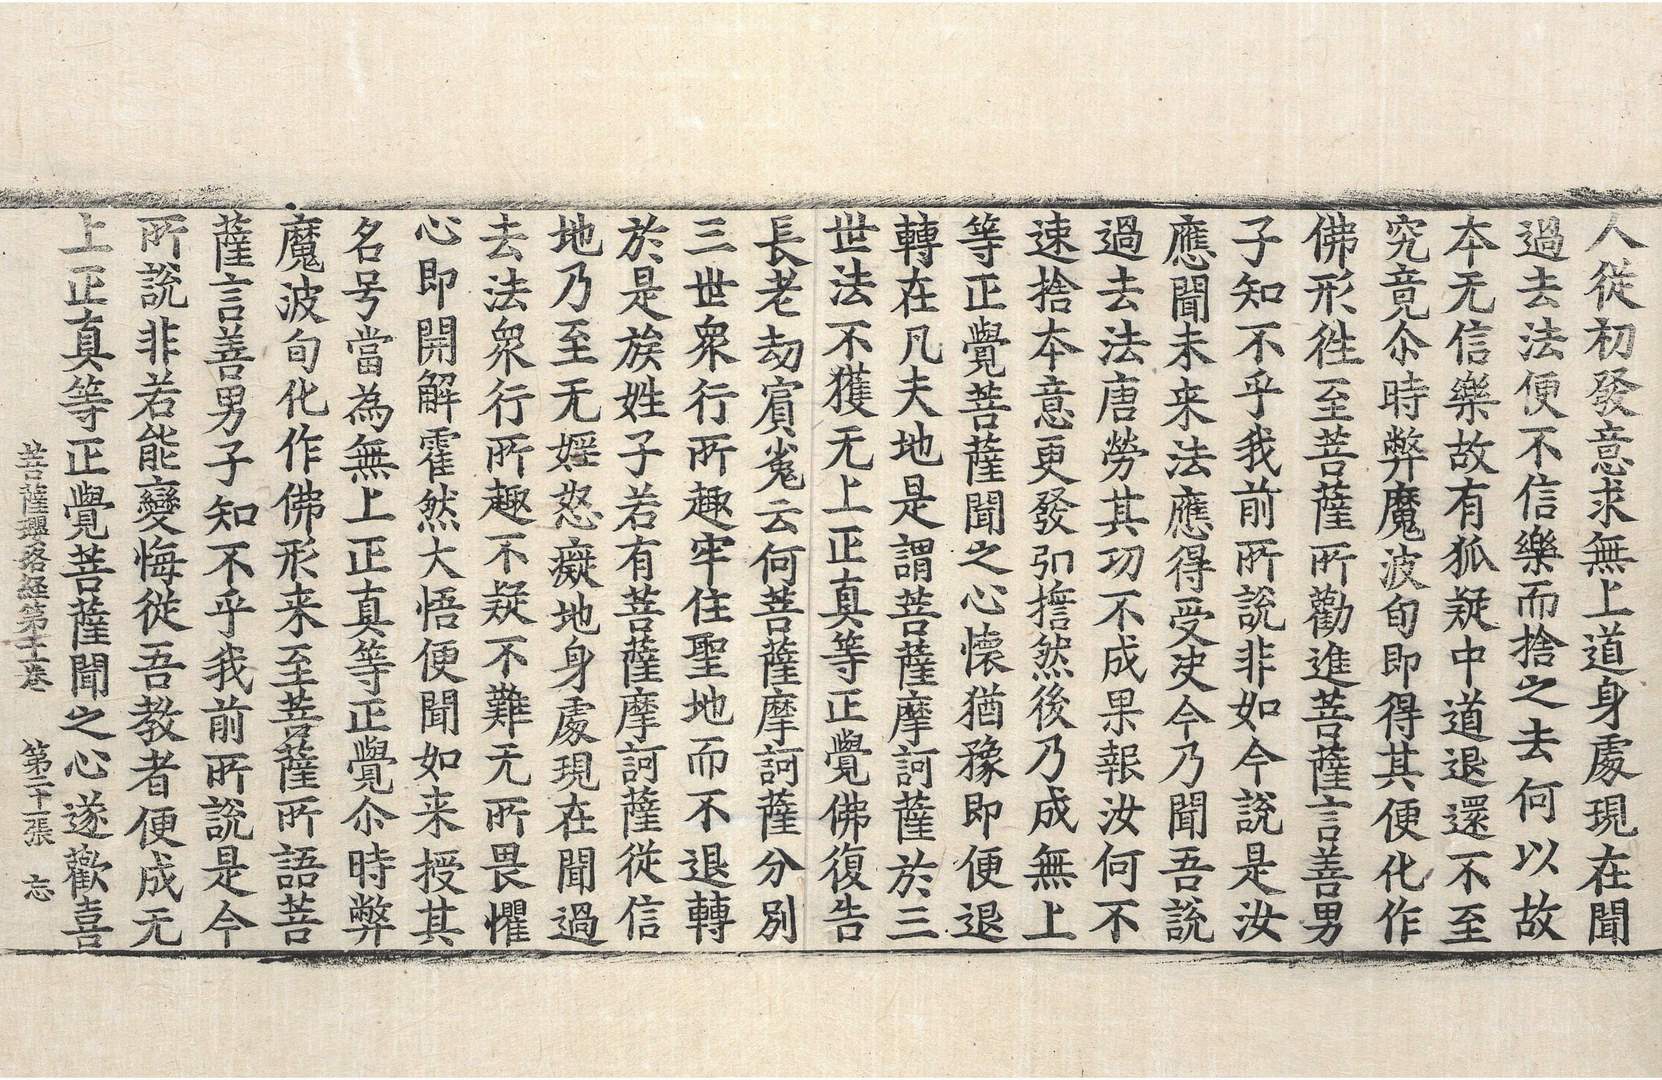 人從初發意求無上道身處現在聞
過去法便不信樂而捨之去何以故
本无信樂故有狐疑中道退還不至
究竟尒時弊魔波旬即得其便化作
佛形徃至菩薩所勸進菩薩言善男
子知不乎我前所說非如今說是汝
應聞未来法應得受决今乃聞吾說
過去法唐勞其功不成果報汝何不
速捨本意更發弘擔然後乃成無上
等正覺菩薩聞之心懷猶豫即便退
轉在凡夫地是謂菩薩摩訶薩於三
世法不獲无上正真等正覺佛復告
長老劫賔㝹云何菩薩摩訶薩分別
三世衆行所趣牢住聖地而不退轉
於是族姓子若有菩薩摩訶薩從信
地乃至无婬怒癡地身處現在聞過
去法衆行所趣不疑不難无所畏懼
心即開解霍然大悟便聞如来授其
名号當為無上正真等正覺尒時弊
魔波旬化作佛形来至菩薩所語菩
薩言善男子知不乎我前所說是今
所說非若能變悔從吾教者便成无
上正真等正覺菩薩聞之心遂歡喜
菩薩瓔珞経第十一卷 第二十一張 忘